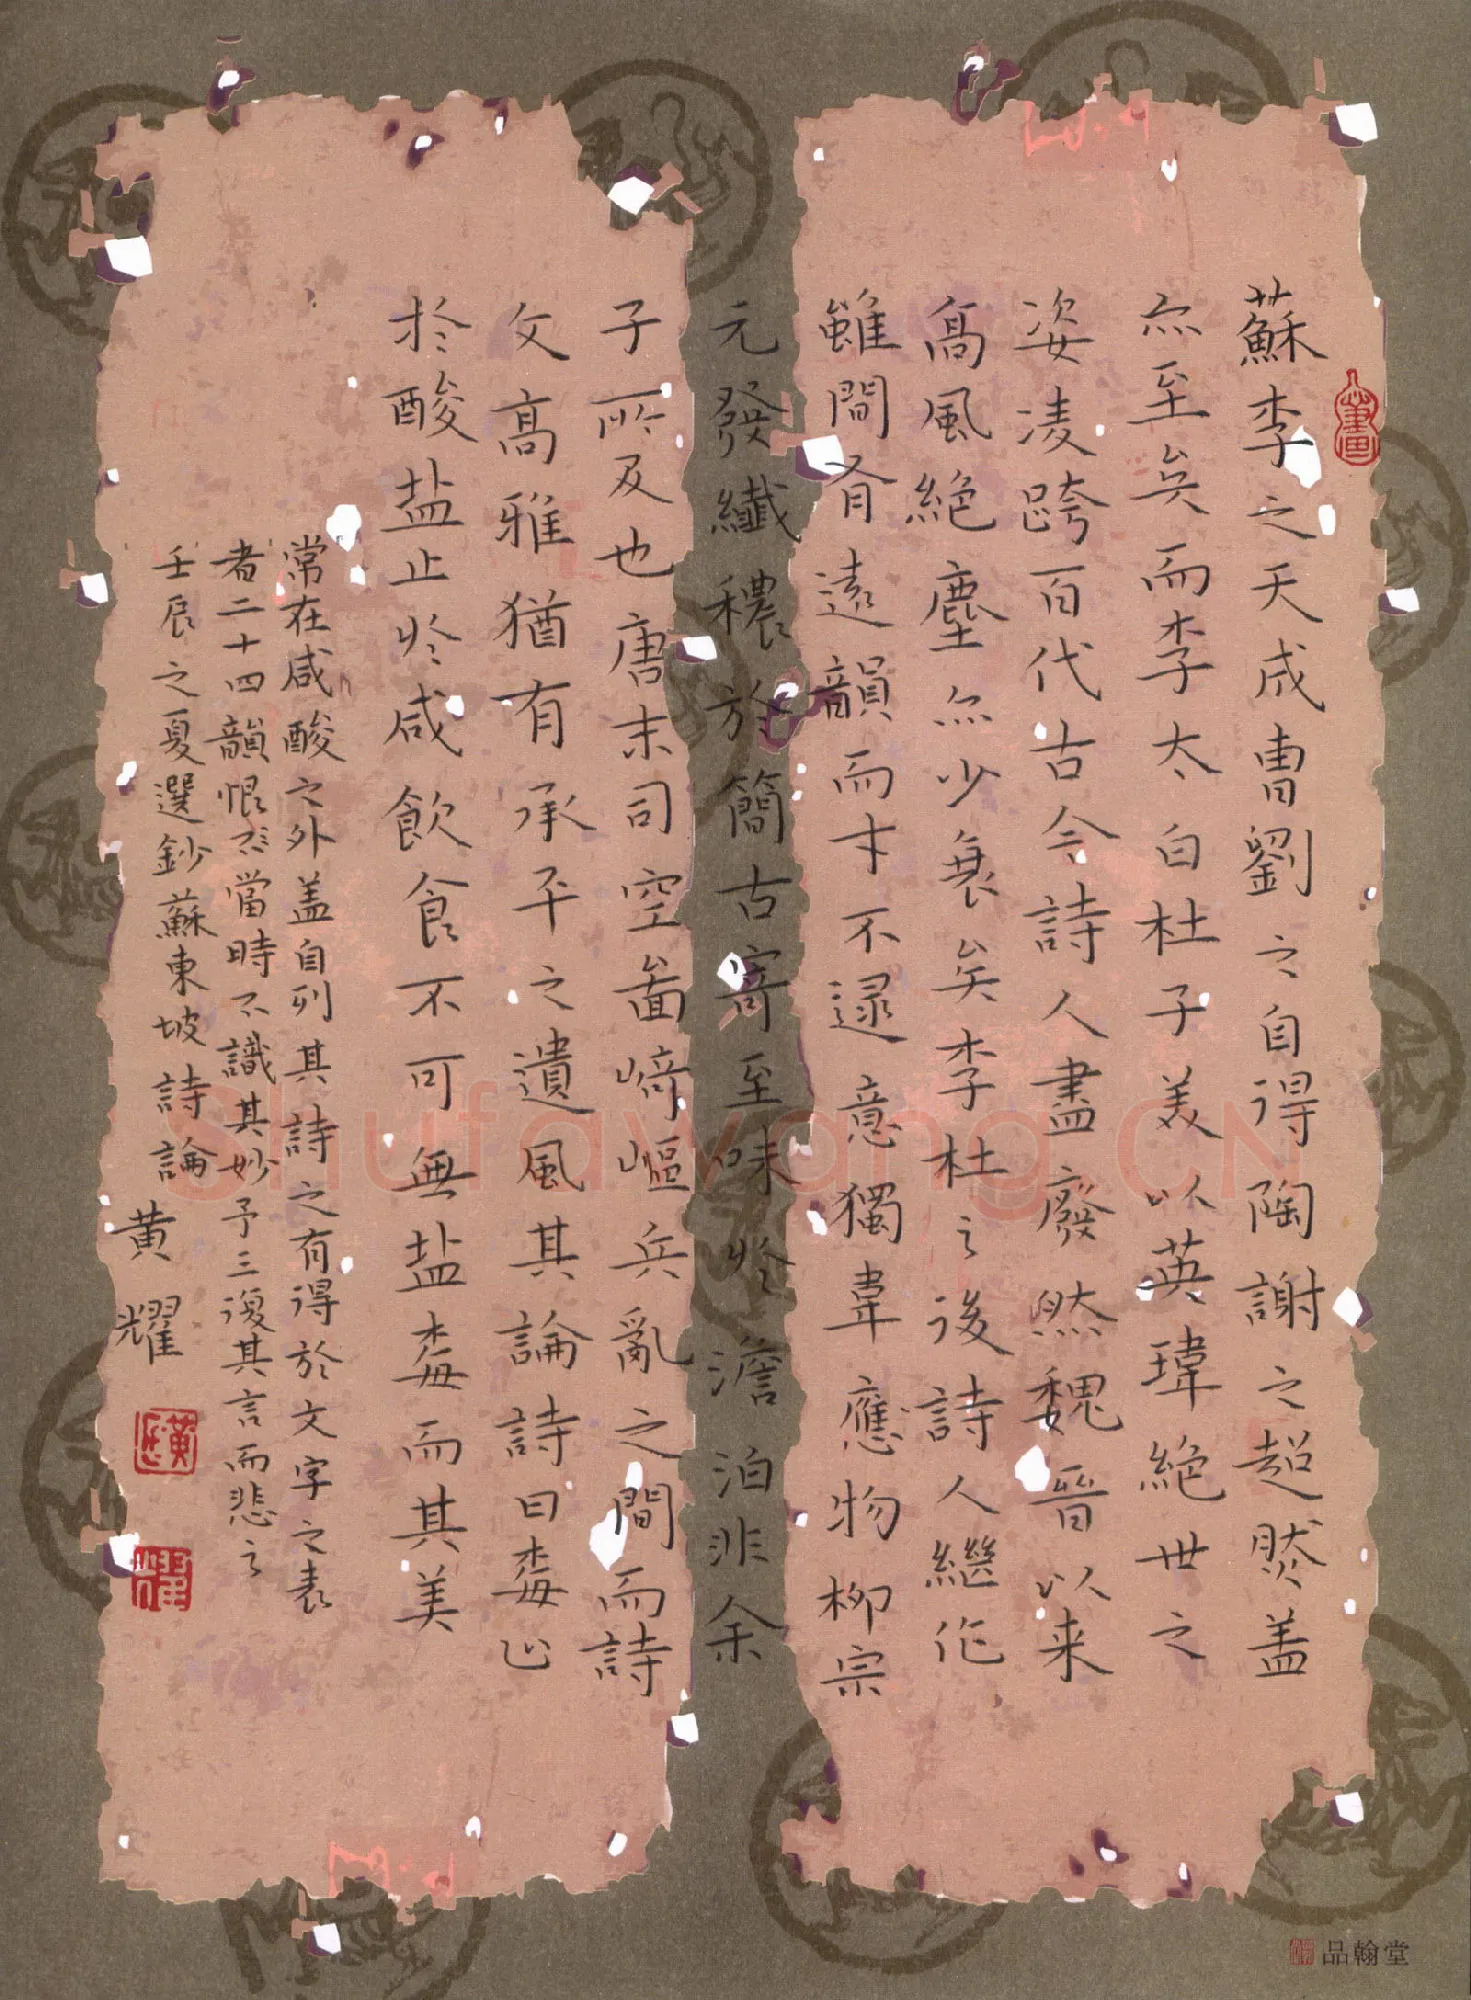 蘇李之天成曹劉之自得陶謝之超然盖
亦至矣而李太白杜子美以英瑋絕世之
姿凌跨百代古今詩人盡廢然魏晉以来
高風絕塵亦少衰矣李杜之後詩人繼作
雖間有遠韻而才不逮意獨韋應物柳宗
元發纖穠於簡古寄至味於澹泊非余
子所及也唐末司空啚崎嶇兵亂之間而詩
文高雅猶有承平之遺風其論詩曰梅止
於酸盐止於咸飲食不可無盐梅而其美
常在咸酸之外盖自列其詩之有得於文字之表
者二十四韻恨不當時不識其妙予三復其言而悲之
壬辰之夏選鈔蘇東坡詩論 黄耀
品翰堂
Shufawang.CN